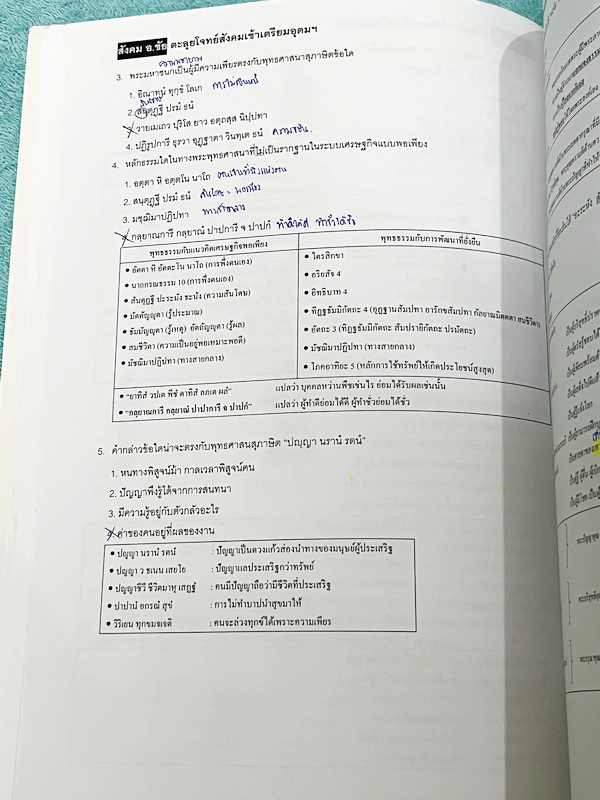 สังคม อ.ชัย ตะลุยโจทย์สังคมเข้าเตรียมอุดมฯ
ความพยายาม
3. พระมหาชนกเป็นผู้มีความเพียรตรงกับพุทธศาสนาสุภาษิตข้อใด
1. อิณาทานํ ทุกฺขํ โลเก การไม่เป็นหนี้
สันโดษ
2. สนฺตุฏฺฐี ปรมํ ธนํ
3. วายเมเถว ปุริโส ยาว อตฺถสฺส นิปฺปทา
4. ปฏิรูปการี ธุรวา อุฏฺฐาตา วินฺทเต ธนํ ความขยัน
4. หลักธรรมใดในทางพระพุทธศาสนาที่ไม่เป็นรากฐานในระบบเศรษฐกิจแบบพอเพียง
1. อตฺตา หิ อตฺตโน นาโถ ตนเป็นที่พึ่งแห่งตน
2. สนฺตุฏฺฐี ปรมํ ธนํ สันโดษ = พอเพียง
3. มชฺฌิมาปฏิปทา ทางสายกลาง
4. กลฺยาณการี กลฺยาณํ ปาปการี จ ปาปกํ ทำดีได้ดี ทำชั่วได้ชั่ว
พุทธธรรมกับแนวคิดเศรษฐกิจพอเพียง
• อัตตา หิ อัตตะโน นาโถ (การพึ่งตนเอง)
• นาถกรณธรรม 10 (การพึ่งตนเอง)
• สันตุฏฐี ปะระมัง ธะนัง (ความสันโดษ)
• มัตตัญญุตา (รู้ประมาณ)
• ธัมมัญญุตา (รู้เหตุ) อัตถัญญุตา (รู้ผล)
• สมชีวิตา (ความเป็นอยู่พอเหมาะพอดี)
• มัชฌิมาปฏิปทา (ทางสายกลาง)
พุทธธรรมกับการพัฒนาที่ยั่งยืน
• ไตรสิกขา
• อริยสัจ 4
• อิทธิบาท 4
• ทิฏฐธัมมิกัตถะ 4 (อุฏฐานสัมปทา อารักขสัมปทา กัลยาณมิตตตา สมชีวิตา)
• อัตถะ 3 (ทิฏฐธัมมิกัตถะ สัมปรายิกัตถะ ปรมัตถะ)
• มัชฌิมาปฏิปทา (ทางสายกลาง)
• โภคอาทิยะ 5 (หลักการใช้ทรัพย์ให้เกิดประโยชน์สูงสุด)
• "ยาทิสํ วปเต พีชํ ตาทิสํ ลภเต ผลํ" แปลว่า บุคคลหว่านพืชเช่นไร ย่อมได้รับผลเช่นนั้น
• "กลฺยาณการี กลฺยาณํ ปาปการี จ ปาปกํ" แปลว่า ผู้ทำดีย่อมได้ดี ผู้ทำชั่วย่อมได้ชั่ว
5. คำกล่าวข้อใดน่าจะตรงกับพุทธศาสนสุภาษิต "ปญฺญา นรานํ รตนํ"
1. หนทางพิสูจน์ม้า กาลเวลาพิสูจน์คน
2. ปัญญาพึงรู้ได้จากการสนทนา
3. มีความรู้อยู่กับตัวกลัวอะไร
4. ค่าของคนอยู่ที่ผลของงาน
• ปญฺญา นรานํ รตนํ : ปัญญาเป็นดวงแก้วส่องนำทางของมนุษย์ผู้ประเสริฐ
• ปญฺญา ว ธเนน เสยฺโย : ปัญญาแลประเสริฐกว่าทรัพย์
• ปญฺญาชีวี ชีวิตมาหุ เสฏฺฐํ : คนมีปัญญาถือว่ามีชีวิตที่ประเสริฐ
• ปาปานํ อกรณํ สุขํ : การไม่ทำบาปนำสุขมาให้
• วิริเยน ทุกขมจฺเจติ : คนจะล่วงทุกข์ได้เพราะความเพียร